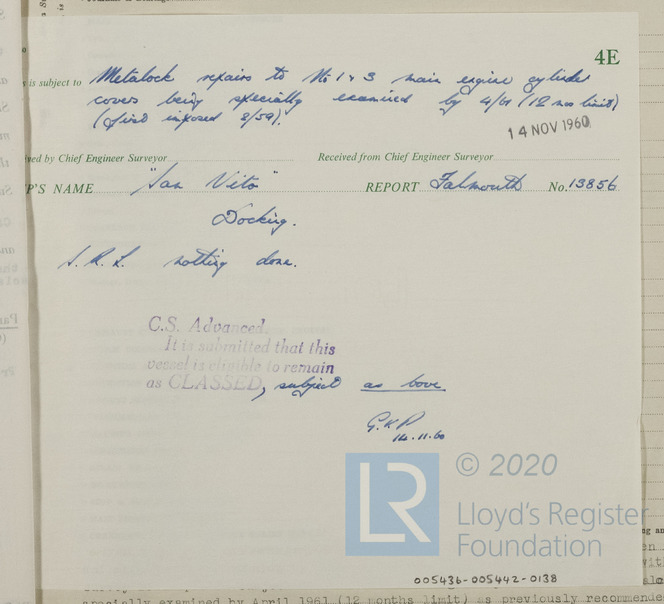 4E
is subject to Metalock repairs to No 1 & 3 main engine cylinder
covers being specially examined by 4/61 (12 mos limit)
(first imposed 8/59).
14 NOV 1960
ved by Chief Engineer Surveyor Received from Chief Engineer Surveyor
P'S NAME "San Vito" REPORT Falmouth No. 13856
Docking.
S.R.L. nothing done.
C.S. Advanced.
It is submitted that this
vessel is eligible to remain
as CLASSED, subject as bove
G.K.P.
14.11.60
© 2020
LR
Lloyd's Register
Foundation
005436-005442-0138
specially examined by April 1961 (12 months limit) as previously recommende